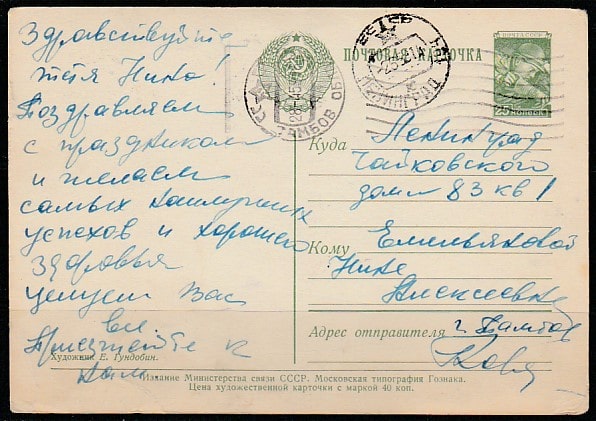 Здравствуйте
тётя Нина!
Поздравляем
с праздником
и желаем
самых наилучших
успехов и хорошего
здоровья
целуем Вас
все
Приезжайте к
нам
Художник Е. Гундобин.
ПОЧТОВАЯ КАРТОЧКА
ПОЧТА СССР
25 КОПЕЕК
ТАМБОВ ОБЛ
ЛЕНИНГРАД
Куда
Ленинград
Чайковского
дом 83 кв 1
Кому
Емельяновой
Нине
Алексеевне
Адрес отправителя
г. Тамбов
Издание Министерства связи СССР. Московская типография Гознака.
Цена художественной карточки с маркой 40 коп.